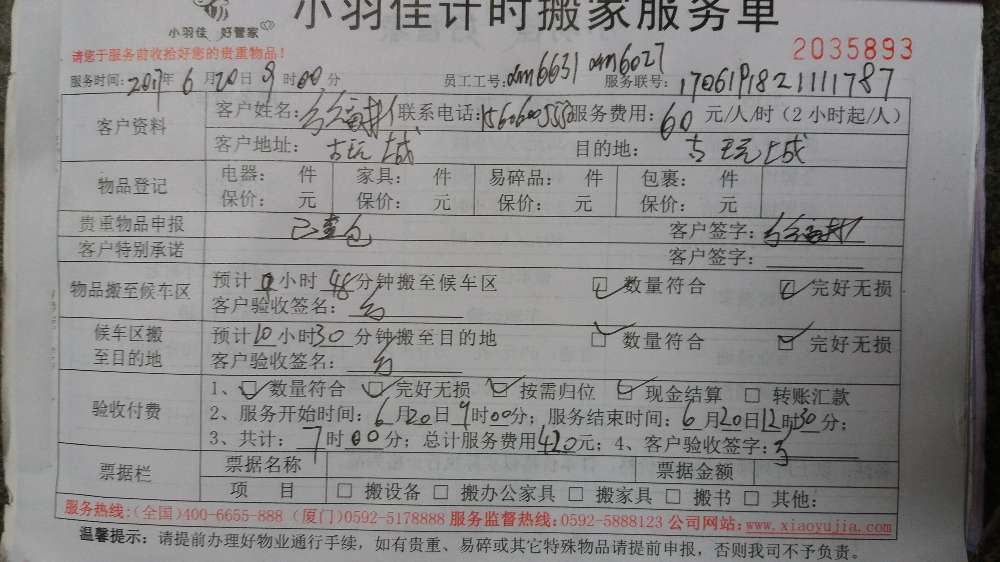 小羽佳计时搬家服务单
小羽佳 好管家
请您于服务前收拾好您的贵重物品!
2035893
服务时间:2017年6月20日9时00分 员工工号:xm6631 xm6027 服务联号:1706191821111787
客户资料 客户姓名: 联系电话: 服务费用:60元/人/时(2小时起/人)
客户地址: 古玩城 目的地: 古玩城
物品登记 电器: 件 家具: 件 易碎品: 件 包裹: 件
保价: 元 保价: 元 保价: 元 保价: 元
贵重物品申报 已查包 客户签字:
客户特别承诺 客户签字:
物品搬至候车区 预计 小时48分钟搬至候车区 ☑ 数量符合 ☑ 完好无损
客户验收签名:
候车区搬至目的地 预计10小时30分钟搬至目的地 ☑ 数量符合 ☑ 完好无损
客户验收签名:
验收付费 1、☑数量符合 ☑完好无损 ☑按需归位 ☑现金结算 □ 转账汇款
2、服务开始时间:6月20日9时00分;服务结束时间:6月20日12时30分;
3、共计:7时00分;总计服务费用420元;4、客户验收签字:
票据栏 票据名称 票据金额
项 目 □ 搬设备 □ 搬办公家具 □ 搬家具 □ 搬书 □ 其他:
服务热线:(全国)400-6655-888 (厦门)0592-5178888 服务监督热线:0592-5888123 公司网站:www.xiaoyujia.com
温馨提示:请提前办理好物业通行手续,如有贵重、易碎或其它特殊物品请提前申报,否则我司不予负责。